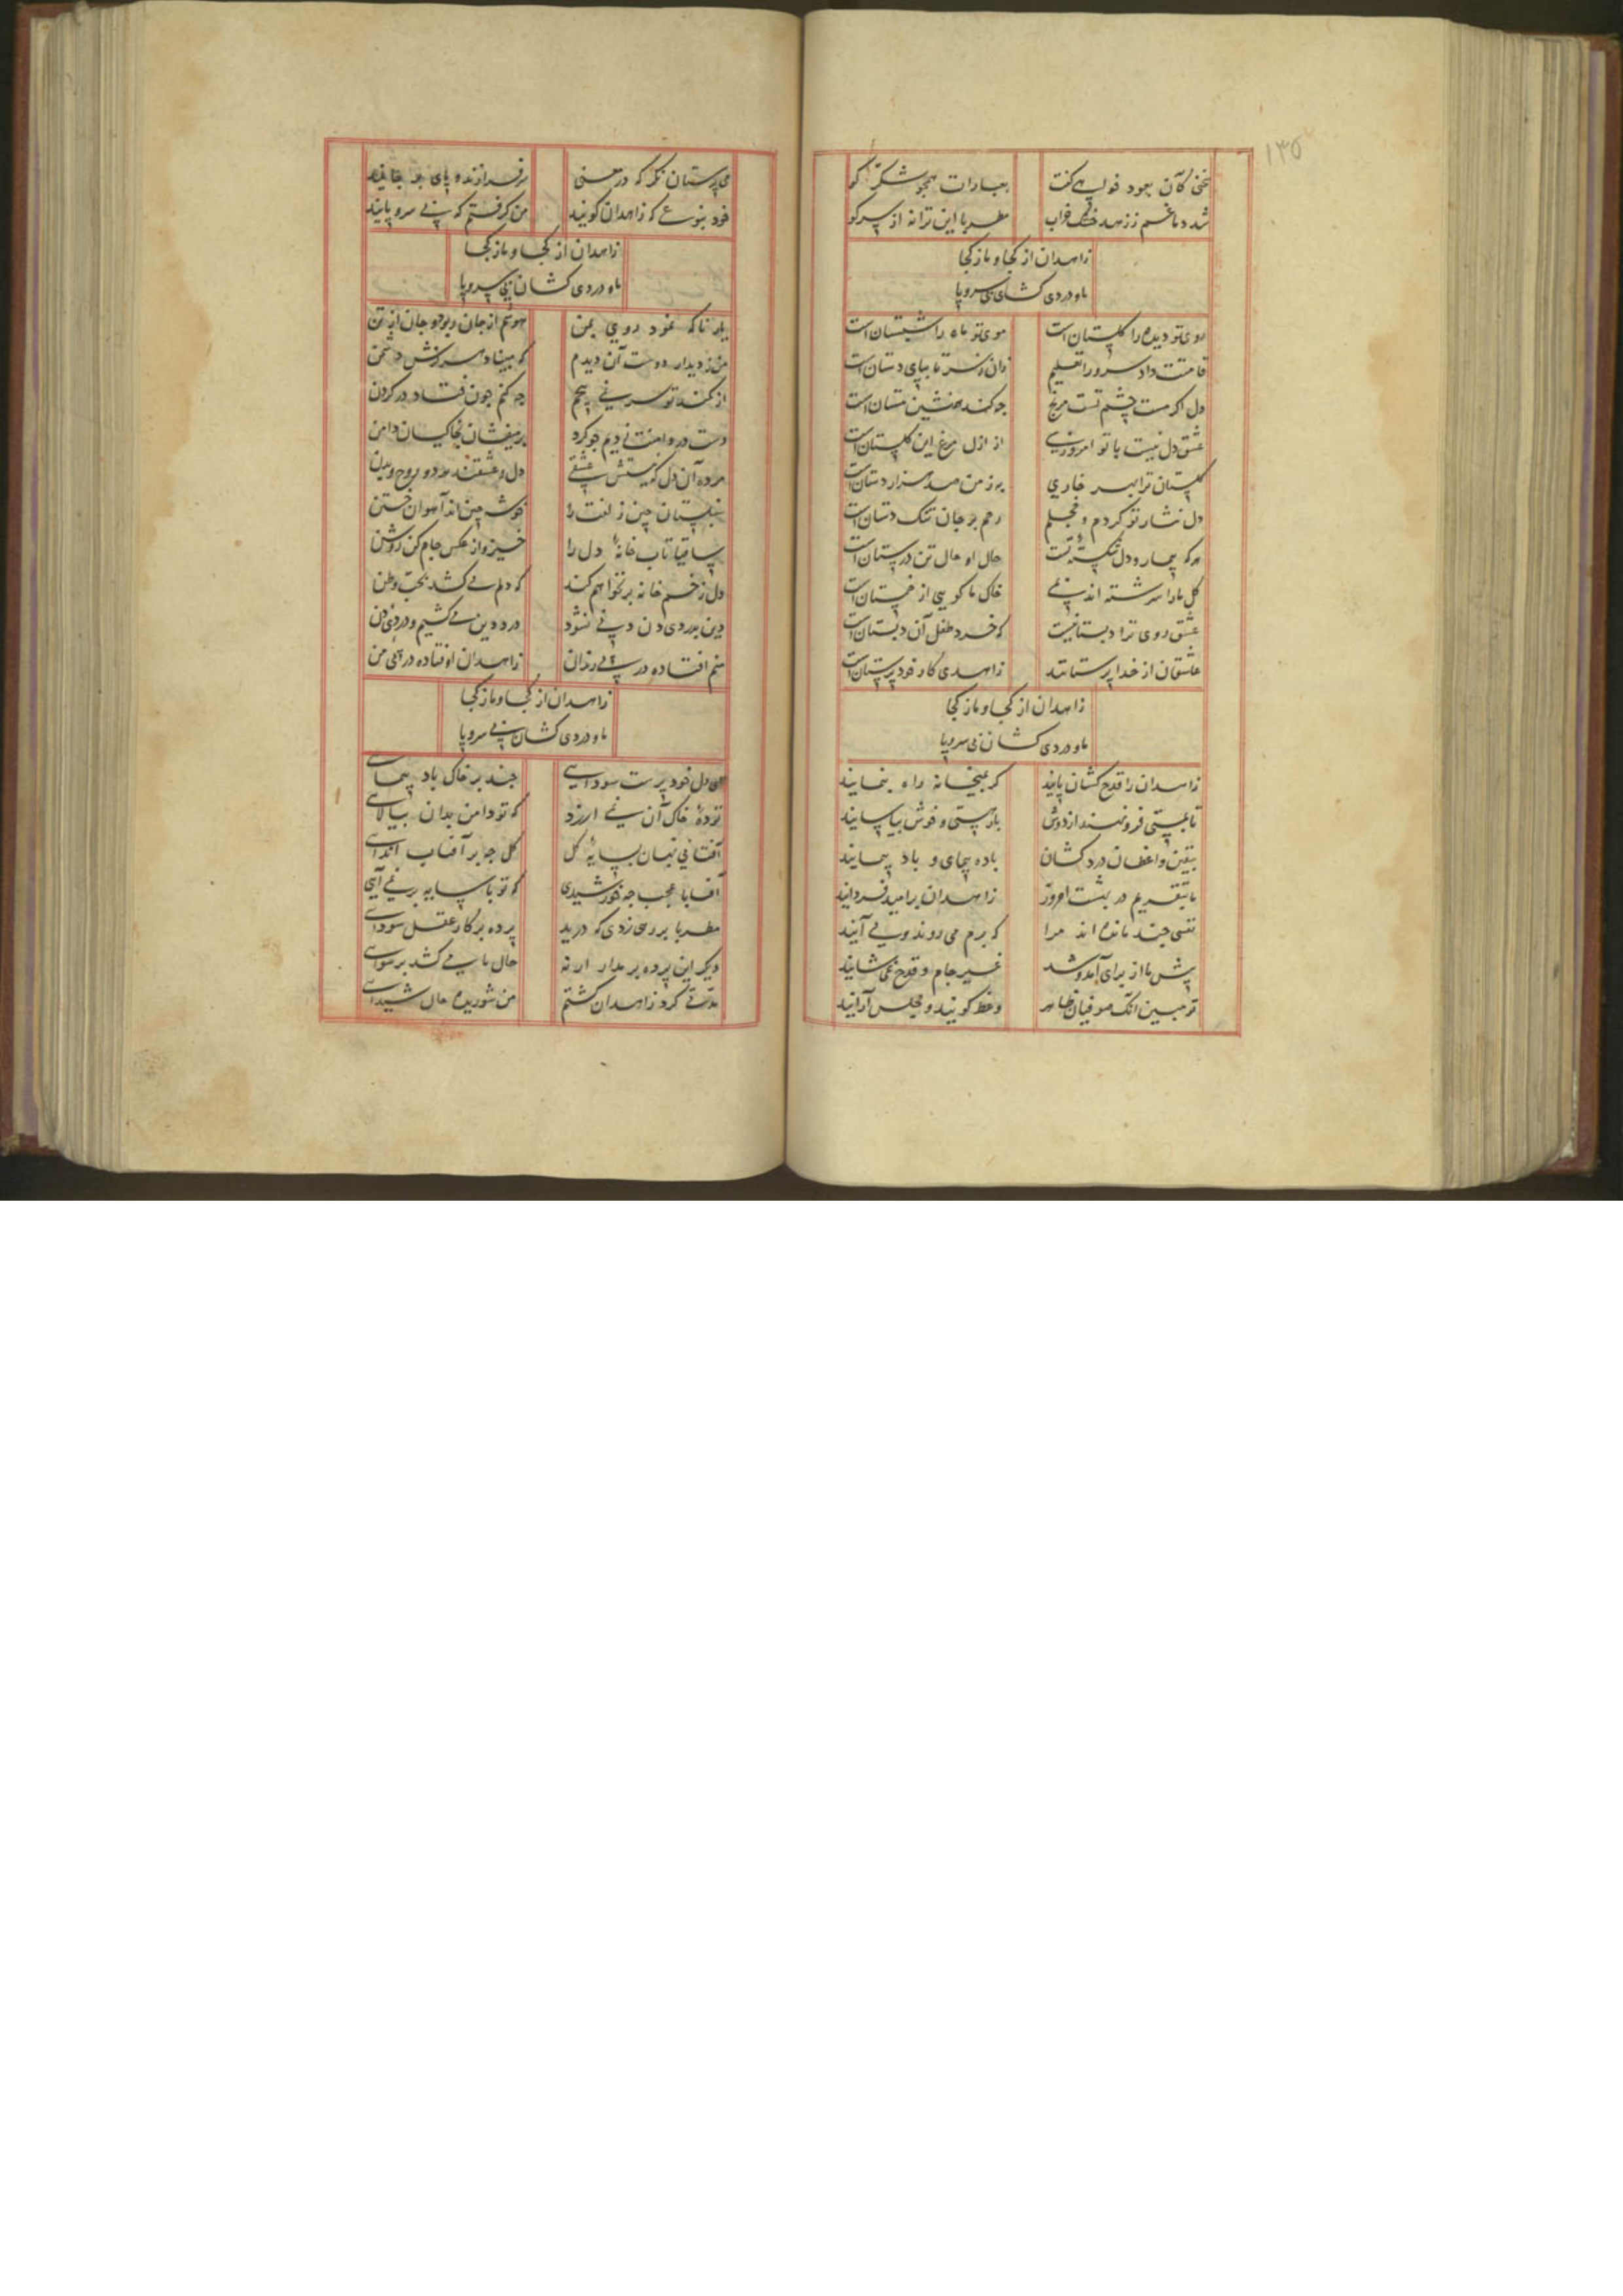 ۱۳۵
سخنی کان بعود خواهی گفت بعبارات همچو شکر گو
شد دماغم ز زهد خشک خراب مطربا این ترانه از سر گو
زاهدان از کجا و ما ز کجا
ما و دردی کشان بی سر و پا
روی تو دیده را گلستان است موی تو ماه را شبستان است
قامتت داد سرو را تعلیم زان سر تا بپای دستان است
دل اگر مست چشم تست مرنج چه کند همنشین مستان است
عشق دل نیست با تو امروزی از ازل مرغ این گلستان است
گلستان ترا بهر خاری به ز من صد هزار دستان است
دل نثار تو کردم و خجلم رحم بر جان تنگ دستان است
هر که بیمار و دل شکسته تست حال او حال تن درستان است
گل ما را سرشته اند بمی خاک ما گویی از خمستان است
عشق روی ترا دبستانیست که خرد طفل آن دبستان است
عاشقان از خدا پرستانند زاهدی کار خود پرستان است
زاهدان از کجا و ما ز کجا
ما و دردی کشان بی سر و پا
زاهدان را قدح کشان پایند گر بمیخانه راه بنمایند
تا بمستی فرو نهند از دوش بار هستی و خوش بیاسایند
بیقین واعظان درد کشان باده پیمای و باد پیمایند
ما بنقدیم در بهشت امروز زاهدان بر امید فردایند
نفسی چند مانده اند مرا که برم می روند و می آیند
پیش ما از برای آمد و شد غیر جام و قدح نمی شایند
تو مبین آنک صوفیان ظاهر وعظ گویند و مجلس آرایند
می پرستان نگر که در معنی سرفرازنده و پای بر جایند
خود بنوعی که زاهدان گویند من گرفتم که بی سر و پایند
زاهدان از کجا و ما ز کجا
ما و دردی کشان بی سر و پا
یار تا که نمود روی بمن جان از تن
من ز دیدار دوست آن دیدم که مبیناد سرزنش دشمن
از کمند تو سر نمی پیچم چه کنم چون فتاد در گردن
دست در دامنت زدیم چو گرد بر میفشان بخاکیان دامن
مرده آن دل که نیستش عشقی دل و عشقند هر دو روح و بدن
سنبلستان چین زلفت را خوشه چین اند آهوان ختن
ساقیا تاب خانه دل را خیز و از عکس جام کن روشن
دل ز خم خانه بر نخواهم کند که دلم می کشد بحب وطن
دین بدردی دن دنی نشود درد دین می کشیم و دردی دن
منم افتاده در پی رندان زاهدان اوفتاده در پی من
زاهدان از کجا و ما ز کجا
ما و دردی کشان بی سر و پا
ای دل خود پرست سودایی چند بر خاک باد پیمایی
توده خاک آن نمی ارزد که تو دامن بدان بیالایی
آفتابی نهان بسایه گل گل چه بر آفتاب اندایی
آفتابا عجب چه خورشیدی که تو با سایه بر نمی آیی
مطربا بر رهی زدی که درید پرده بر کار عقل سودایی
دیگر این پرده بر مدار ار نه حال ما می کشد برسوایی
مدتی گرد زاهدان گشتم من شوریده حال شیدایی